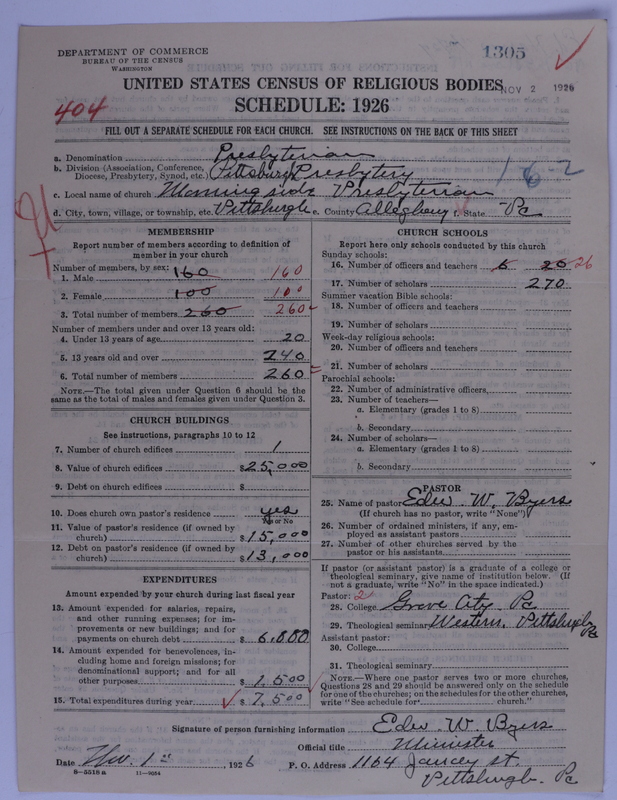 DEPARTMENT OF COMMERCE
BUREAU OF THE CENSUS
WASHINGTON
1305
UNITED STATES CENSUS OF RELIGIOUS BODIES
NOV 2 1926
404
SCHEDULE: 1926
FILL OUT A SEPARATE SCHEDULE FOR EACH CHURCH. SEE INSTRUCTIONS ON THE BACK OF THIS SHEET
a. Denomination Presbyterian
b. Division (Association, Conference, Diocese, Presbytery, Synod, etc.) Pittsburgh Presbytery
162
c. Local name of church Morningside Presbyterian
d. City, town, village, or township, etc. Pittsburgh e. County Allegheny f. State Pa
MEMBERSHIP
Report number of members according to definition of
member in your church
Number of members, by sex:
1. Male 160 160
2. Female 100 100
3. Total number of members 260 260
Number of members under and over 13 years old:
4. Under 13 years of age 20
5. 13 years old and over 240
6. Total number of members 260
NOTE.—The total given under Question 6 should be the
same as the total of males and females given under Question 3.
CHURCH BUILDINGS
See instructions, paragraphs 10 to 12
7. Number of church edifices 1
8. Value of church edifices $25,000
9. Debt on church edifices $
10. Does church own pastor's residence yes
Yes or No
11. Value of pastor's residence (if owned by
church) $15,000
12. Debt on pastor's residence (if owned by
church) $13,000
EXPENDITURES
Amount expended by your church during last fiscal year
13. Amount expended for salaries, repairs,
and other running expenses; for im-
provements or new buildings; and for
payments on church debt $6,000
14. Amount expended for benevolences, in-
cluding home and foreign missions; for
denominational support; and for all
other purposes $1,500
15. Total expenditures during year $7,500
CHURCH SCHOOLS
Report here only schools conducted by this church
Sunday schools:
16. Number of officers and teachers 6 26 26
17. Number of scholars 270
Summer vacation Bible schools:
18. Number of officers and teachers
19. Number of scholars
Week-day religious schools:
20. Number of officers and teachers
21. Number of scholars
Parochial schools:
22. Number of administrative officers
23. Number of teachers—
a. Elementary (grades 1 to 8)
b. Secondary
24. Number of scholars—
a. Elementary (grades 1 to 8)
b. Secondary
PASTOR
25. Name of pastor Edw W. Byers
(If church has no pastor, write "None")
26. Number of ordained ministers, if any, em-
ployed as assistant pastors
27. Number of other churches served by the
pastor or his assistants
If pastor (or assistant pastor) is a graduate of a college or
theological seminary, give name of institution below. (If
not a graduate, write "No" in the space indicated.)
Pastor: 2
28. College Grove City Pa
29. Theological seminary Western, Pittsburgh Pa
Assistant pastor:
30. College
31. Theological seminary
NOTE.—Where one pastor serves two or more churches,
Questions 28 and 29 should be answered only on the schedule
for one of the churches; on the schedules for the other churches,
write "See schedule for church."
Signature of person furnishing information Edw W. Byers
Official title Minister
Date Nov. 1st, 1926 P. O. Address 1164 Jancey st.
Pittsburgh. Pa
8—5518a 11—9064